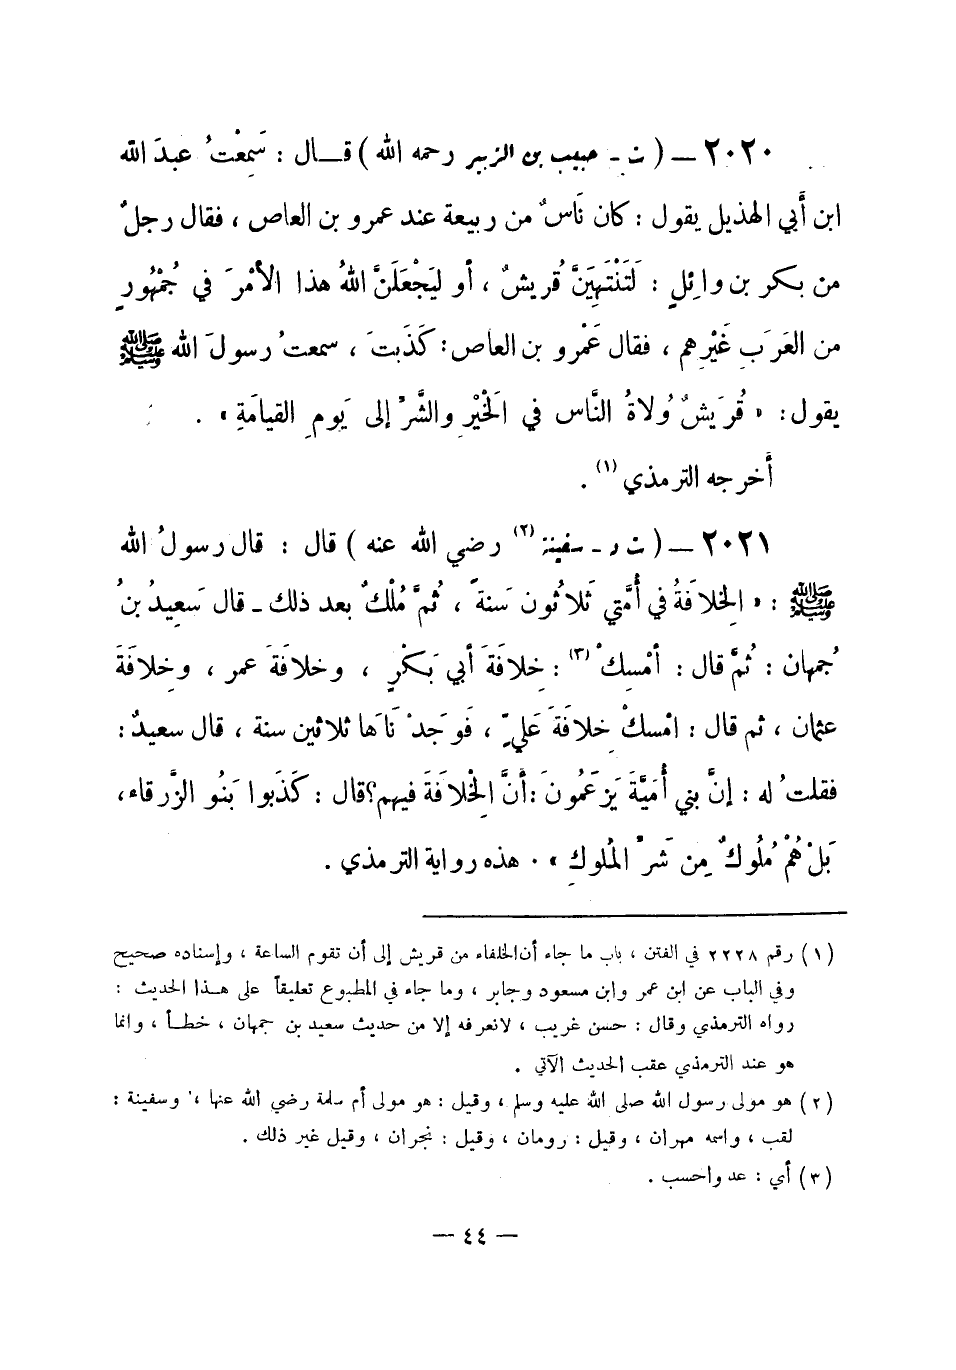 ٢٠٢٠ – ( ت - حبيب بن الزبير رحمه الله ) قـــال : سَمِعْتُ عبدَ الله
ابن أَبي الهذيل يقول : كان نَاسٌ من ربيعة عند عمرو بن العاص ، فقال رجلٌ
من بكر بن وائِلٍ : لَتَنْتَهِيَنَّ قُريشٌ ، أو ليَجْعَلَنَّ اللهُ هذا الأمْرَ في جُمْهُورٍ
من العَرَبِ غَيْرِهم ، فقال عَمْرو بن العاص : كَذَبتَ ، سمعتُ رسولَ الله ﷺ
يقول : « قُرَيشٌ وُلاةُ النَّاس في الَخْيْرِ والشَّرِّ إلى يَومِ القيامَةِ » .
أخرجه الترمذي (١) .
٢٠٢١ – ( ت د - سفينة (٢) رضي الله عنه ) قال : قال رسولُ الله
ﷺ : « الِخلافَةُ في أُمَّتي ثَلاثُون سَنةً ، ثُمَّ مُلْكٌ بعد ذلك - قال سَعيدُ بنُ
جُمهان : ثُمَّ قال : أمْسِكْ (٣) : خِلافَةَ أبي بَكْرٍ ، وخلافَةَ عمر ، وخِلافَةَ
عثمان ، ثم قال : امْسكْ خِلافَةَ عَليٍّ ، فَوَجَدْنَاها ثلاثين سنة ، قال سعيدٌ :
فقلتُ له : إنَّ بني أُمَيَّةَ يَزعَمُونَ : أنَّ الِخْلافَةَ فيهم؟ قال : كَذَبوا بَنُو الزَّرقاء ،
بَلْ هُمْ مُلُوكٌ مِن شَرِّ الُملوكِ » . هذه رواية الترمذي .
(١) رقم ٢٢٢٨ في الفتن ، باب ما جاء أن الخلفاء من قريش إلى أن تقوم الساعة ، وإسناده صحيح
وفي الباب عن ابن عمر وابن مسعود وجابر ، وما جاء في المطبوع تعليقاً على هــذا الحديث :
رواه الترمذي وقال : حسن غريب ، لانعرفه إلا من حديث سعيد بن جمهان ، خطـأ ، وانما
هو عند الترمذي عقب الحديث الآتي .
(٢) هو مولى رسول الله صلى الله عليه وسلم ، وقيل : هو مولى أم سلمة رضي الله عنها ، وسفينة :
لقب ، واسمه مهران ، وقيل : رومان ، وقيل : نجران ، وقيل غير ذلك .
(٣) أي : عد واحسب .
— ٤٤ —